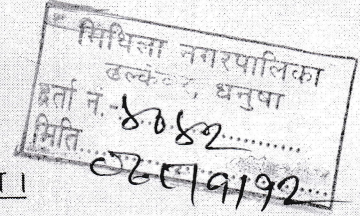 मिथिला नगरपालिका
ढल्केवर, धनुषा
दर्ता नं. ४०४२
मिति